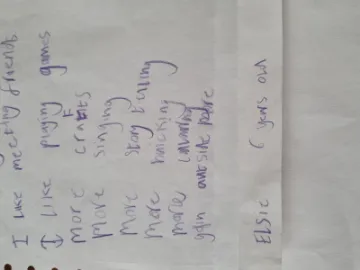 I Like meeting friends
I Like playing games
more crafts
more singing
more story telling
more
more
outside
ELSIE 6 years own